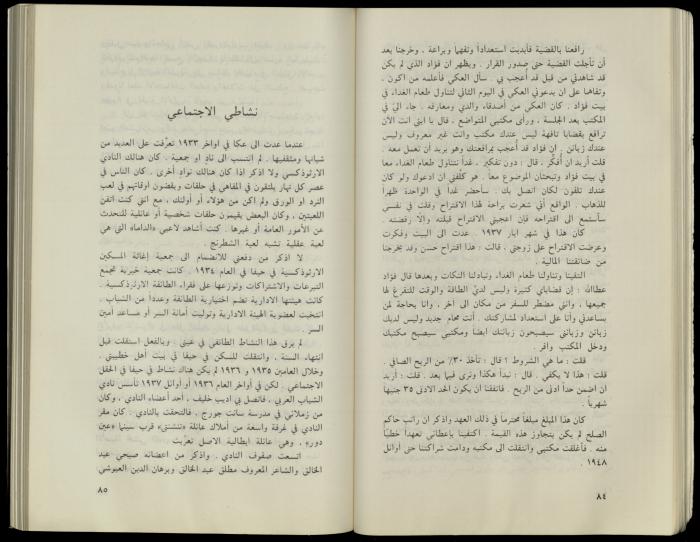 رافعنا بالقضية فأبديت استعداداً وتفهما وبراعة ، وخرجنا بعد
أن تأجلت القضية حتى صدور القرار . ويظهر ان فؤاد الذي لم يكن
قد شاهدني من قبل قد أعجب بي . سأل العكي فأعلمه من اكون ،
وتفاهما على ان يدعوني العكي في اليوم الثاني لتناول طعام الغداء في
بيت فؤاد . كان العكي من أصدقاء والدي ومعارفه . جاء اليّ في
المكتب بعد الجلسة ، ورأى مكتبي المتواضع ، قال يا ابني انت الآن
ترافع بقضايا تافهة ليس عندك مكتب وانت غير معروف وليس
عندك زبائن . إن فؤاد قد أعجب بمرافعتك وهو يريد أن تعمل معه .
قلت أريد ان أفكر . قال : دون تفكير . غداً نتناول طعام الغداء معا
في بيت فؤاد وتبحثان الموضوع معاً . هو كلّفني ان ادعوك ولو كان
عندك تلفون لكان اتصل بك . سأحضر غداً في الواحدة ظهرا
للذهاب . الواقع أني شعرت براحة لهذا الاقتراح وقلت في نفسي
سأستمع الى اقتراحه فإن اعجبني الاقتراح قبلته والا رفضته .
كان هذا في شهر ايار ١٩٣٧ . عدت الى البيت وفكرت
وعرضت الاقتراح على زوجتي . قالت : هذا اقتراح حسن وقد يخرجنا
من ضائقتنا المالية .
التقينا وتناولنا طعام الغداء وتبادلنا النكات وبعدها قال فؤاد
عطاالله : إن قضاياي كثيرة وليس لديّ الطاقة والوقت للتفرغ لها
جميعها ، وانني مضطر للسفر من مكان الى آخر ، وانا بحاجة لمن
يساعدني وأنا على استعداد لمشاركتك . أنت محام جديد وليس لديك
زبائن وزبائني سيصبحون زبائنك ايضاً ومكتبي سيصبح مكتبك
ودخل المكتب وافر .
قلت : ما هي الشروط ؟ قال : تأخذ ٣٠٪ من الربح الصافي .
قلت : هذا لا يكفي . قال : نبدأ هكذا ونرى فيما بعد . قلت : أريد
ان اضمن حداً أدنى من الربح . فاتفقنا أن يكون الحد الادنى ٣٥ جنيها
شهرياً .
كان هذا المبلغ مبلغاً محترماً في ذلك العهد واذكر ان راتب حاكم
الصلح لم يكن يتجاوز هذه القيمة . اكتفينا بإعطائي تعهداً خطيا
منه . فأغلقت مكتبي وانتقلت الى مكتبه ودامت شراكتنا حتى أوائل
١٩٤٨ .
٨٤
نشاطي الاجتماعي
عندما عدت الى عكا في اواخر ١٩٣٣ تعرّفت على العديد من
شبانها ومثقفيها . لم انتسب الى ناد او جمعية . كان هنالك النادي
الارثوذكسي ولا اذكر اذا كان هنالك نواد أخرى . كان الناس في
عصر كل نهار يلتقون في المقاهي في حلقات ويقضون اوقاتهم في لعب
النرد او الورق ولم اكن من هؤلاء أو أولئك ، مع انني كنت اتقن
اللعبتين ، وكان البعض يقيمون حلقات شخصية أو عائلية للتحدث
عن الأمور العامة أو غيرها . كنت أشاهد لاعبي «الداما» التي هي
لعبة عقلية تشبه لعبة الشطرنج .
لا اذكر من دفعني للانضمام الى جمعية إغاثة المسكين
الارثوذكسية في حيفا في العام ١٩٣٤ . كانت جمعية خيرية تجمع
التبرعات والاشتراكات وتوزعها على فقراء الطائفة الارثوذكسية .
كانت هيئتها الادارية تضم اختيارية الطائفة وعدداً من الشباب .
انتخبت لعضوية الهيئة الادارية وتوليت أمانة السر أو مساعد أمين
السر .
لم يرق هذا النشاط الطائفي في عيني . وبالفعل استقلت قبل
انتهاء السنة ، وانتقلت للسكن في حيفا في بيت أهل خطيبتي .
وخلال العامين ١٩٣٥ و ١٩٣٦ لم يكن هناك نشاط في حيفا في الحقل
الاجتماعي . لكن في أواخر العام ١٩٣٦ أو أوائل ١٩٣٧ تأسس نادي
الشباب العربي ، فاتصل بي اديب خليف ، أحد أعضاء النادي ، وكان
من زملائي في مدرسة سانت جورج . فالتحقت بالنادي . كان مقر
النادي في غرفة واسعة من أملاك عائلة «تنشنتي» قرب سينما «عين
دور» ، وهي عائلة ايطالية الاصل تعرّبت
اتسعت صفوف النادي . واذكر من اعضائه صبحي عبد
الخالق والشاعر المعروف مطلق عبد الخالق وبرهان الدين العبوشي
٨٥